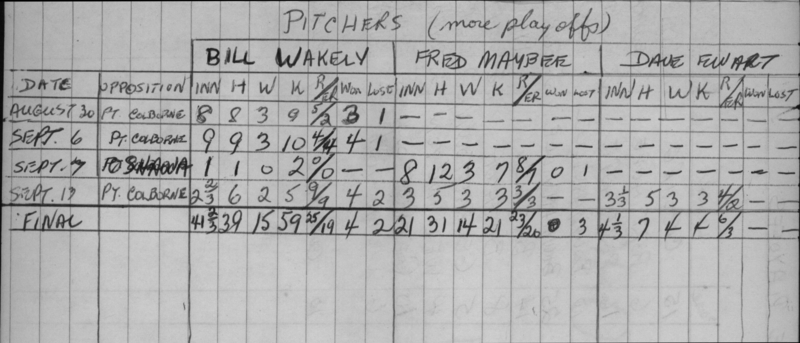 PITCHERS (more play offs)
BILL WAKELY FRED MAYBEE DAVE EWART
DATE OPPOSITION INN H W K R/ER WON LOST INN H W K R/ER WON LOST INN H W K R/ER WON LOST
AUGUST 30 PT. COLBORNE 8 8 3 9 5/2 3 1 — — — — — — — — — — — — — —
SEPT. 6 PT. COLBORNE 9 9 3 10 4/4 4 1 — — — — — — — — — — — — — —
SEPT. 1 1 0 2 0/0 — — 8 12 3 7 8/7 0 1 — — — — — — —
SEPT. 13 PT. COLBORNE 2 2/3 6 2 5 9/9 4 2 3 5 3 3 3/3 — — 3 1/3 5 3 3 4/2 — —
FINAL 41 2/3 39 15 59 25/19 4 2 21 31 14 21 23/20 0 3 4 1/3 7 4 4 6/3 — —